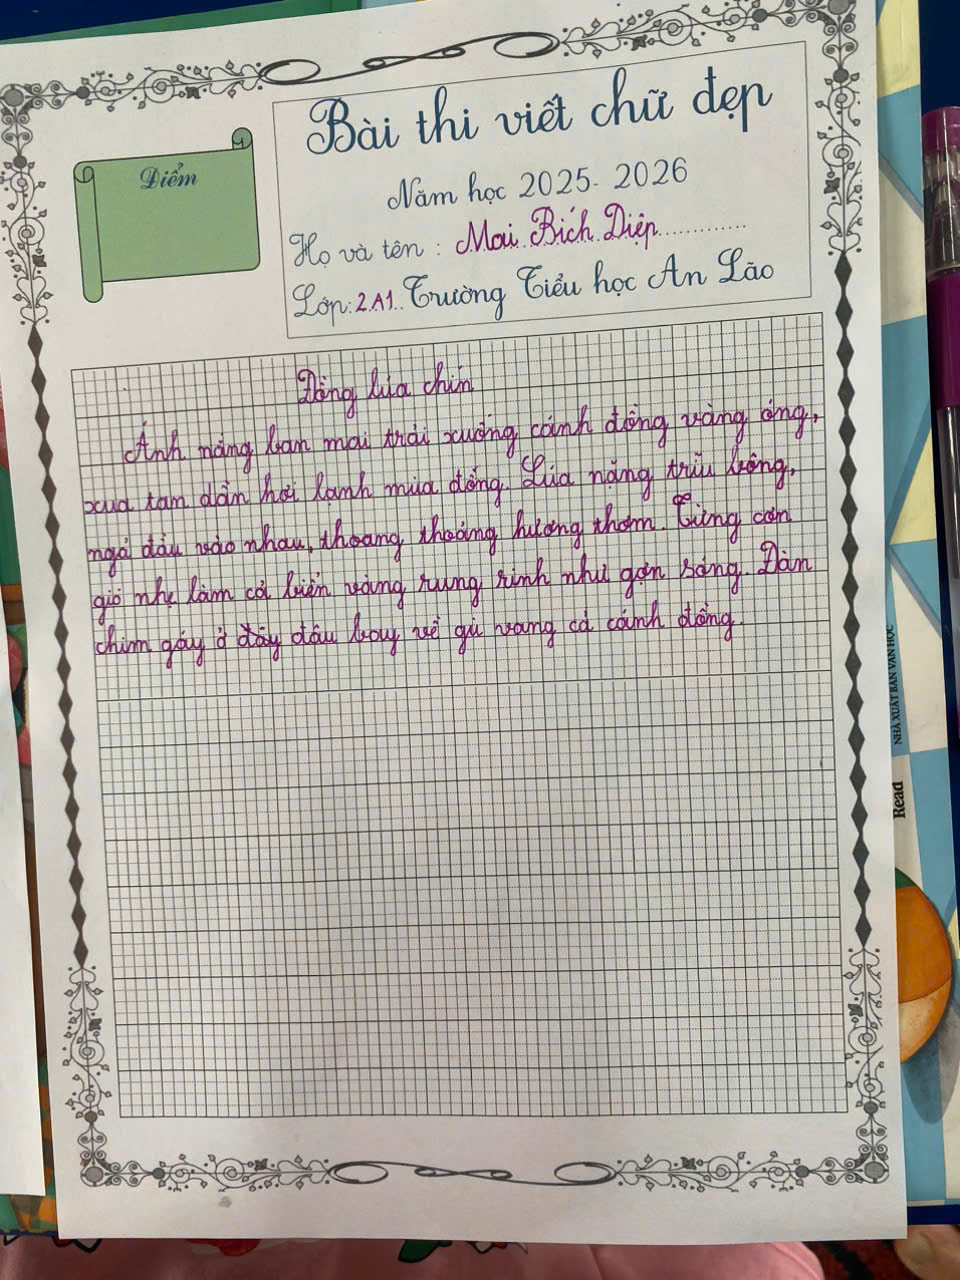 Bài thi viết chữ đẹp
Điểm
Năm học 2025- 2026
Họ và tên : Mai Bích Diệp
Lớp: 2A1 Trường Tiểu học An Lão
Đồng lúa chín
Ánh nắng ban mai trải xuống cánh đồng vàng óng,
xua tan dần hơi lạnh mùa đông. Lúa nặng trĩu bông,
ngả đầu vào nhau, thoang thoảng hương thơm. Từng cơn
gió nhẹ làm cả biển vàng rung rinh như gợn sóng. Đàn
chim gáy ở đây đâu bay về gù vang cả cánh đồng.
NHÀ XUẤT BẢN VĂN HỌC
Read